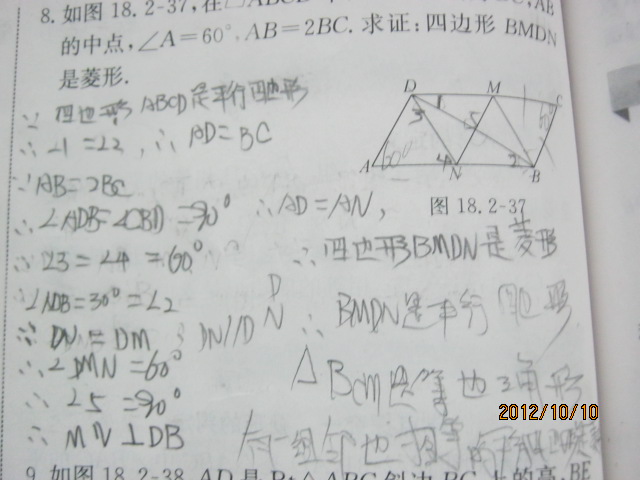 8. 如图 18.2-37, 在▱ABCD
的中点, ∠A=60°, AB=2BC. 求证: 四边形 BMDN
是菱形.
∵ 四边形 ABCD是平行四边形
∴ ∠1=∠2, ∴ AD=BC
∵AB=2BC
∴∠ADB=∠CBD=90° ∴AD=AN,
∴∠3=∠4=60° ∴四边形BMDN是菱形
∠NDB=30°=∠2
∵ DN=DM ∴ BMDN是平行四边形
∴∠DMN=60° △BCM是等边三角形
∴ ∠5=90°
∴ MN⊥DB 有一组邻边相等的
D 1 M C
3 5 60°
A 60° 4 N 2 B
图 18.2-37
2012/10/10
9. 如图 18.2-38, AD 是 Rt△ABC 斜边 BC 上的高, BE